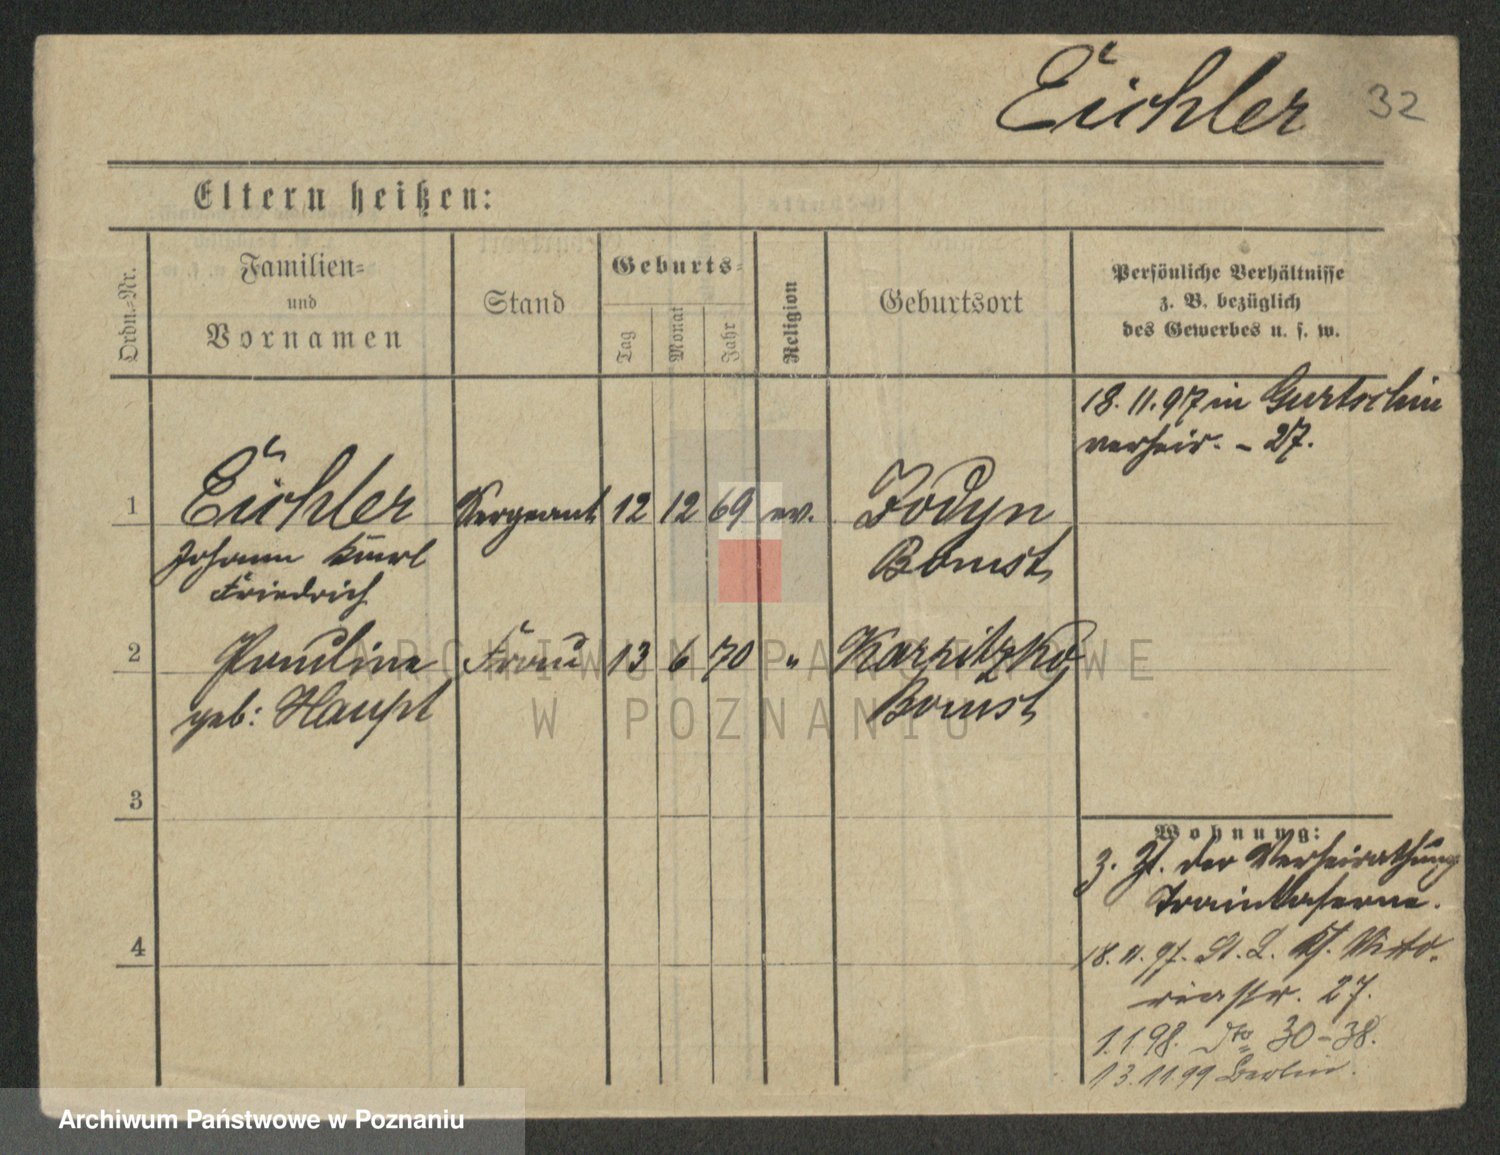 Eichler 32
Eltern heißen:
Ordn.-Nr.
Familien-
und
Vornamen
Stand
Geburts-
Tag
Monat
Jahr
Religion
Geburtsort
Persönliche Verhältnisse
z. B. bezüglich
des Gewerbes u. s. w.
18.11.97 in Gurtschin
verheir. - 27.
1 Eichler Sergeant 12 12 69 ev. Jodyn
Johann Karl Bomst
Friedrich
2 Pauline Frau 13 6 70 " Karpitzko
geb: Haupt Bomst
3
Wohnung:
z. Zt. der Verheirathung
Trainkaserne.
4
18.11.97. St. L. Kf. Victo-
riastr. 27.
1.1 98. 30-38.
13.11.99 Berlin.
ARCHIWUM PAŃSTWOWE
W POZNANIU
Archiwum Państwowe w Poznaniu